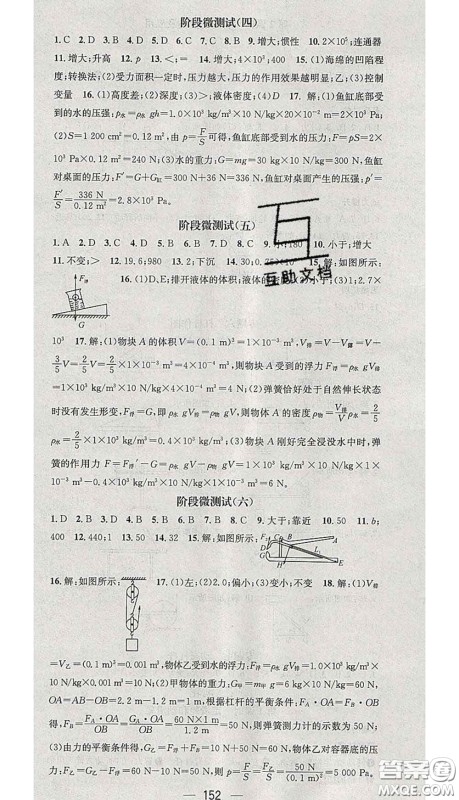 阶段微测试(四)
1. C 2. B 3. D 4. C 5. C 6. D 7. D 8. B 9. 增大;惯性 10. 2×10⁵;连通器
11. 增大;升高 12. > 13. 增大; 14. 4×10³;400 15. (1)海绵的凹陷程
度;转换法;(2)受力面积一定时,压力越大,压力的作用效果越明显;乙;(3)控制
变量 16. (1)高度差;(2)深度;(3)>;液体密度;(4)D 17. 解:(1)鱼缸底部受
到的水的压强:p=ρ水 gh=1.0×10³ kg/m³×10 N/kg×0.20 m=2×10³ Pa.
(2)S=1 200 cm²=0.12 m²,由 p=F/S 可得,鱼缸底部受到的水的压力:F=pS=2×
10³ Pa×0.12 m²=240 N;(3)水的重力:G=mg=30 kg×10 N/kg=300 N,鱼
缸对桌面的压力:F′=G+G缸=300 N+36 N=336 N,鱼缸对桌面产生的压强:p′=
F′/S=336 N/0.12 m²=2.8×10³ Pa.
阶段微测试(五)
1. A 2. D 3. B 4. D 5. D 6. C 7. B 8. C 9. 小 180 10. 小于;增大
11. 不变;> 12. 19.6;980 13. 2;下沉 14. 30; 15. 解:如图所示:
16. (1)D、E;排开液体的体积;液体的密度;(2)小于;1;2.7×
10³ 17. 解:(1)物块 A 的体积 V=(0.1 m)³=1×10⁻³ m³,V排=V-V露=V-
2/5 V=3/5 V=3/5×1×10⁻³ m³=6×10⁻⁴ m³,则物块 A 受到的浮力:F浮=ρ水 gV排=
1×10³ kg/m³×10 N/kg×6×10⁻⁴ m³=6 N;(2)弹簧恰好处于自然伸长状态
时没有发生形变,F浮=G,即 ρ水 gV排=ρ物 gV,则物体 A 的密度 ρ物=V排/V ρ水=3/5
ρ水=
(3)物块 A 刚好完全浸没水中时,弹
簧的作用力 F=F浮′-G=ρ水 gV-ρ物 gV=1×10³ kg/m³×10 N/kg×1×
阶段微测试(六)
1. D 2. B 3. D 4. B 5. D 6. B 7. D 8. C 9. 大于;靠近 10. 50 11. b;
400 12. 440;1 13. 50 14. 32 15. 解:如图所示:
16. 解:如图所示: 17. (1)左;(2)2.0;偏小;(3)变小;不变 18. 解:(1)V排
=V乙=(0.1 m)³=0.001 m³,物体乙受到的水的浮力:F浮=ρ水 gV排=1×10³
kg/m³×10 N/kg×0.001 m³=10 N;(2)甲物体的重力:G甲=m甲 g=6 kg×10 N/kg=60
N,OA=AB-OB=2.2 m-1.2 m=1 m,根据杠杆的平衡条件:FA·OA=FB·
OB,FB=FA·OA/OB=G甲·OA/OB=60 N×1 m/1.2 m=50 N,则弹簧测力计的示数为 50 N;
(3)由力的平衡条件得,G乙=F浮+F拉=10 N+50 N=60 N,物体乙对容器底的压
力:F压=FB=50 N,由 p=F/S 得,压强 p=F压/S乙=50 N/(0.1 m)²=5 000 Pa.
152
互助文档
答案圈
MXQE.COM